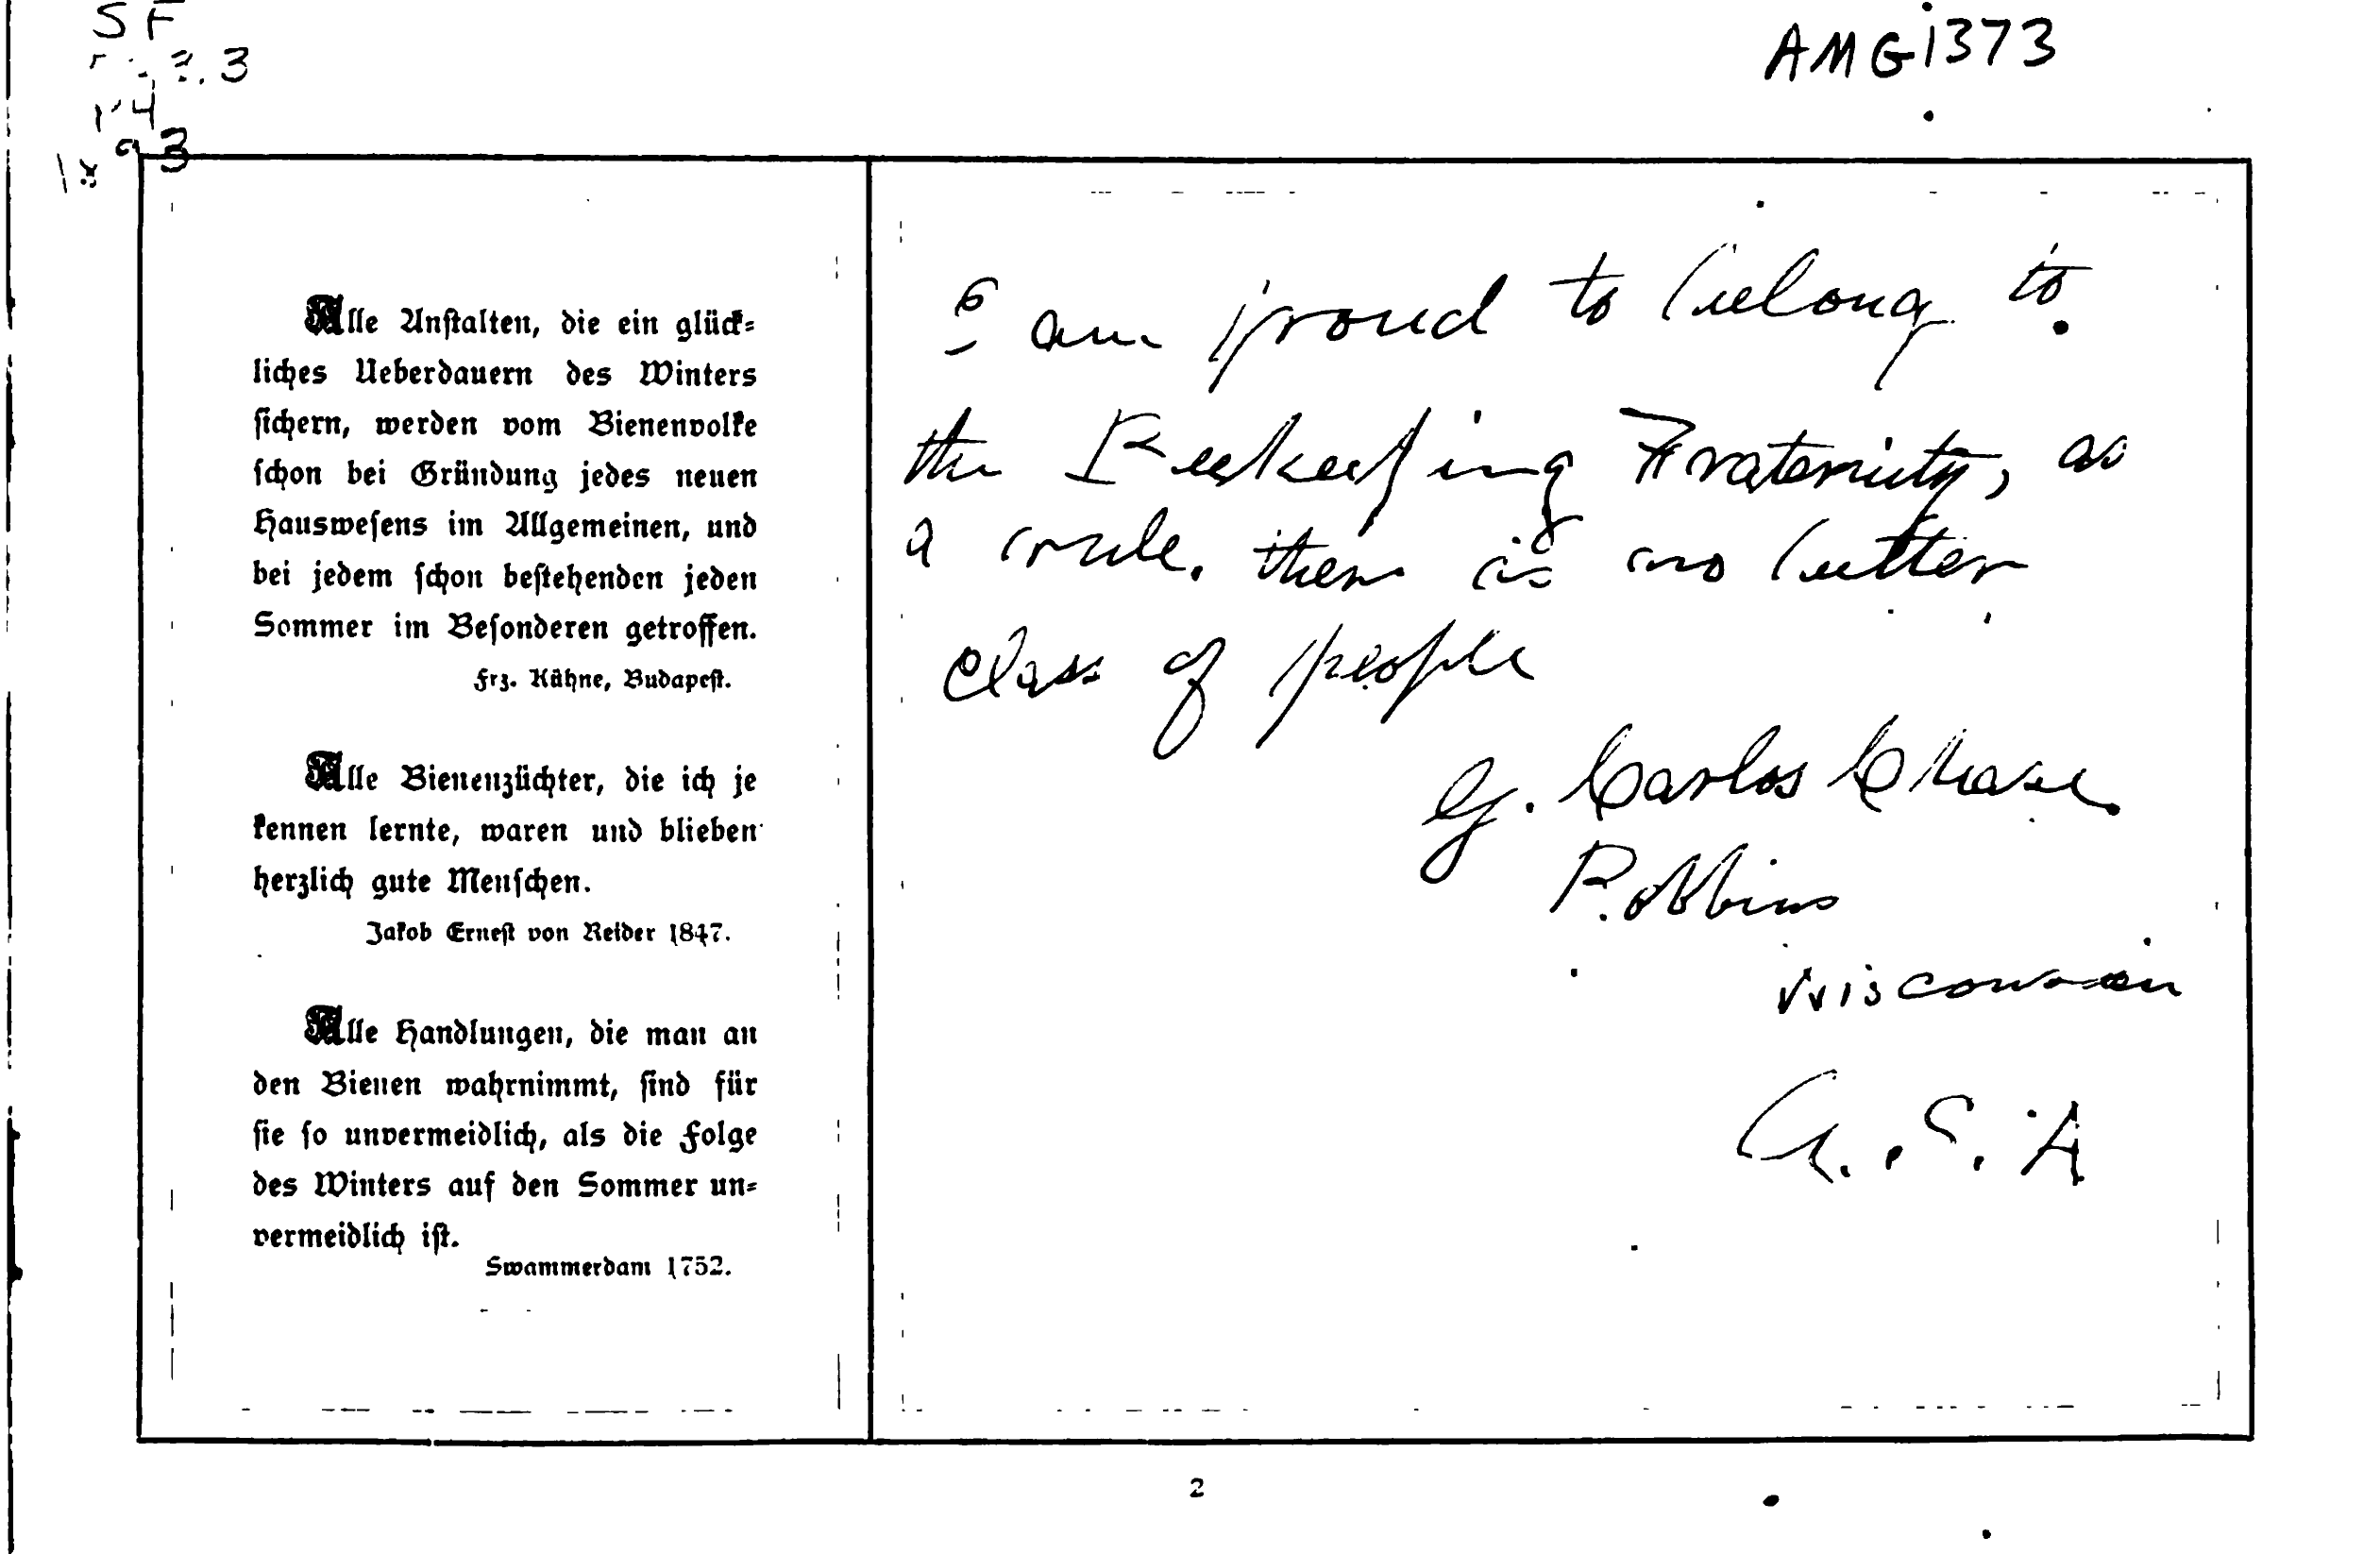 SF
AMG1373
3
Alle Anſtalten, die ein glück⸗
liches Ueberdauern des Winters
ſichern, werden vom Bienenvolke
ſchon bei Gründung jedes neuen
Hausweſens im Allgemeinen, und
bei jedem ſchon beſtehenden jeden
Sommer im Beſonderen getroffen.
Frz. Kühne, Budapeſt.
Alle Bienenzüchter, die ich je
kennen lernte, waren und blieben
herzlich gute Menſchen.
Jakob Erneſt von Reider 1847.
Alle Handlungen, die man an
den Bienen wahrnimmt, ſind für
ſie ſo unvermeidlich, als die Folge
des Winters auf den Sommer un⸗
vermeidlich iſt.
Swammerdam 1752.
I am proud to belong to
the Beekeeping Fraternity, as
a rule, there is no better
class of people
G. Carlos Chase
Robbins
Wisconsin
U.S.A
2